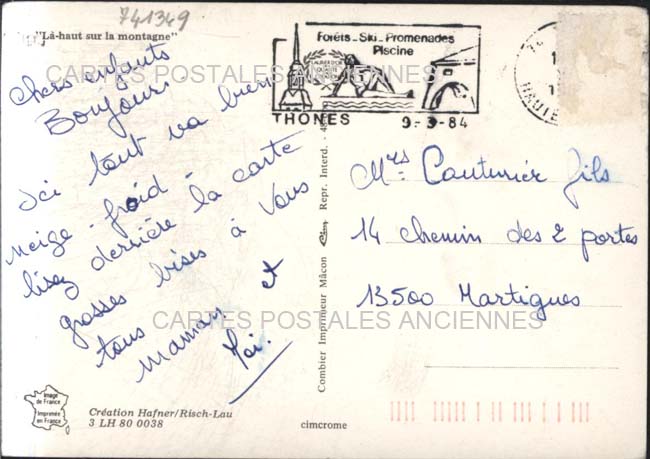 741349
"Là-haut sur la montagne"
Chers enfants
Bonjour.
Ici tout va bien
neige - froid -
lisez derrière la carte
grosses bises à Vous
tous
maman et
Forêts_Ski_Promenades
Piscine
THONES
9-3-84
HAUTE
CARTES POSTALES ANCIENNES
Mrs Couturier fils
14 chemin des 2 portes
13500 Martigues
CARTES POSTALES ANCIENNES
Combier Imprimeur Mâcon Cim Repr. Interd.
Image
de France
Imprimée
en France
Création Hafner/Risch-Lau
3 LH 80 0038
cimcrome